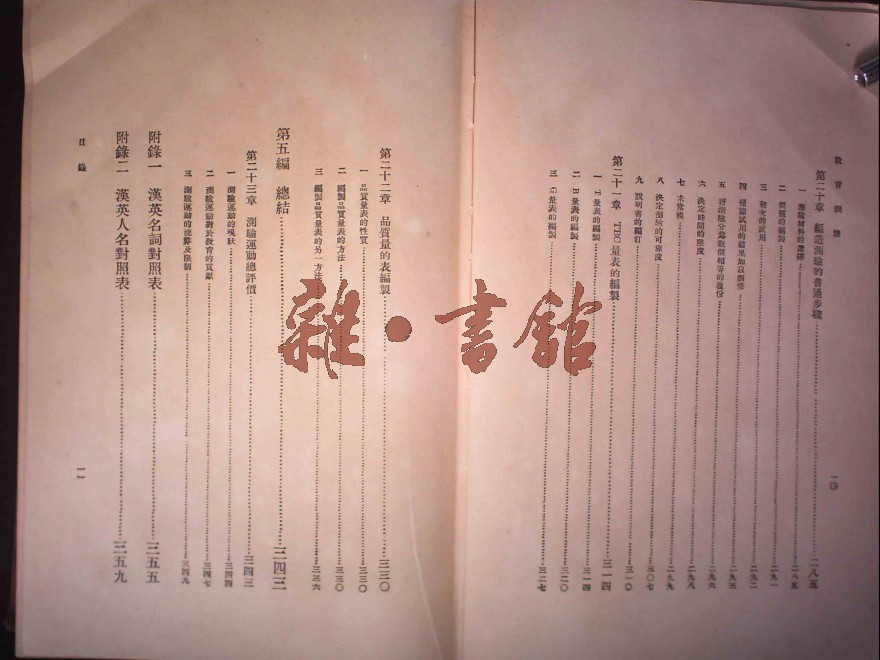 教育測驗
第二十章　編造測驗的普通步驟……二八五
一　測驗材料的選擇……二八五
二　問題的編製……二九一
三　初次的試用……二九二
四　根據試用的結果加以刪修……二九三
五　將測驗分爲數個相等的複份……二九六
六　決定時間的限度……二九八
七　求常模……二九九
八　決定測驗的可靠度……三〇七
九　說明書的編訂……三一〇
第二十一章　TBC量表的編製……三一四
一　T量表的編製……三一四
二　B量表的編製……三二〇
三　C量表的編製……三二七
一〇
第二十二章　品質量的表編製……三三〇
一　品質量表的性質……三三〇
二　編製品質量表的方法……三三〇
三　編製品質量表的另一方法……三三六
第五編　總結……三四三
第二十三章　測驗運動總評價……三四三
一　測驗運動的現狀……三四四
二　測驗運動對於教育的貢獻……三四七
三　測驗運動的流弊及限制……三四九
附錄一　漢英名詞對照表……三五五
附錄二　漢英人名對照表……三五九
目錄
一一
雜·書館